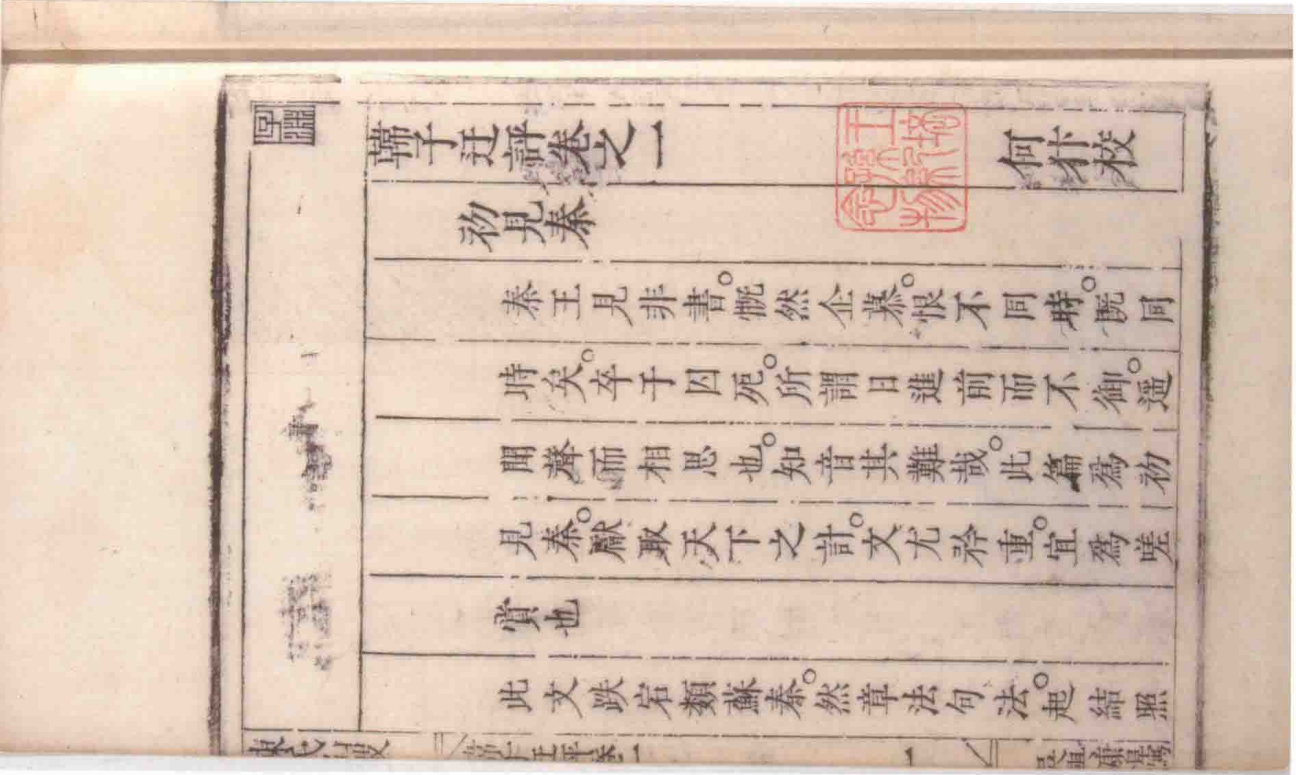 韓子迂評卷之一 何犿校
初見秦
秦王見非書。慨然企慕。恨不同時。旣同
時矣。卒于囚死。所謂日進前而不御。遥
聞聲而相思也。知音其難哉。此篇爲初
見秦。獻取天下之計。文尤矜重。宜爲嗟
賞也
此文跌宕類蘇秦。然章法句法。起結照